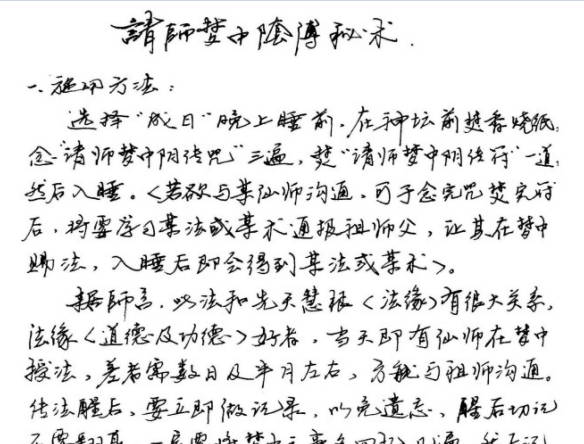 請師梦中陰傳秘术.
一、施用方法：
选择“成日”晚上睡前，在神坛前焚香烧纸，
念“请师梦中阴传咒”三遍，焚“请师梦中阴传符”一道，
然后入睡。〈若欲与某仙师沟通，可于念完咒焚完符
后，将要学习某法或某术通报祖师父，让其在梦中
赐法，入睡后即会得到某法或某术〉。
据師言，此法和先天慧根〈法缘〉有很大关系，
法缘〈道德及功德〉好者，当天即有仙师在梦中
授法，差者需数日及半月左右，方能与祖师沟通。
传法醒后，要立即做记录，以免遗忘，醒后切记